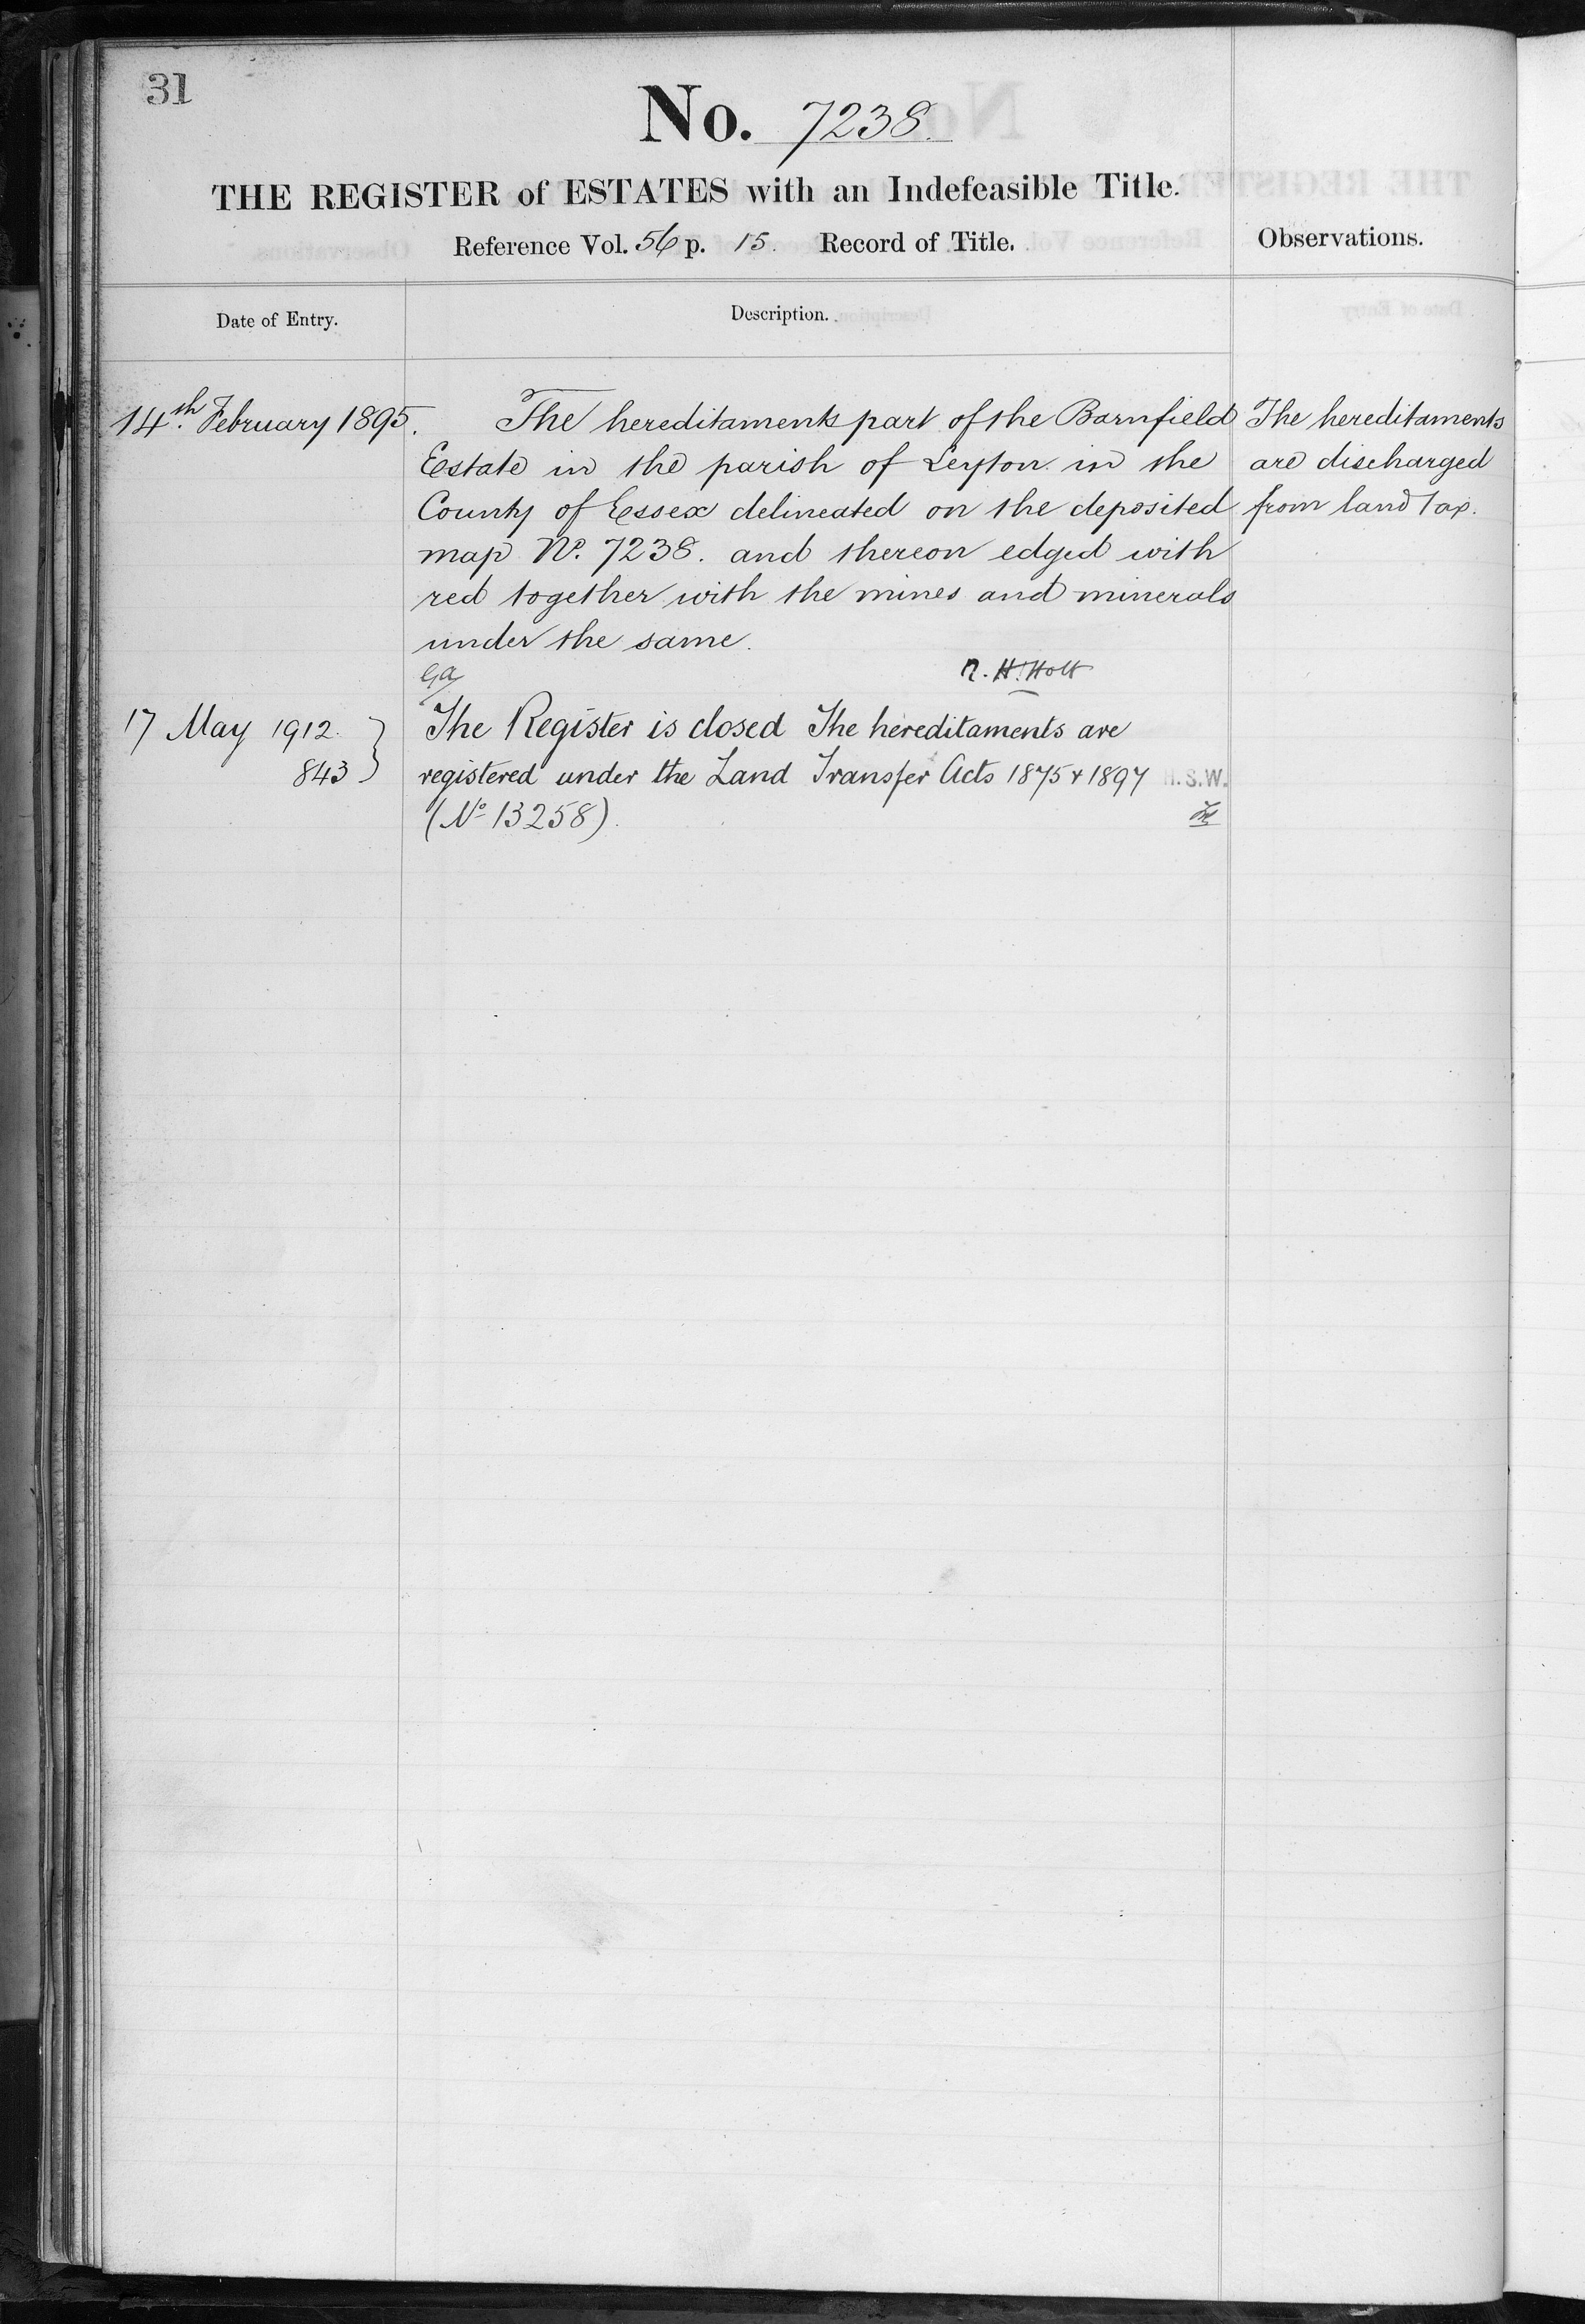 31
No. 7238.
THE REGISTER of ESTATES with an Indefeasible Title.
Reference Vol. 56 p. 15. Record of Title.
Observations.
Date of Entry.
Description.
14th. February 1895.
The hereditaments part of the Barnfield
Estate in the parish of Leyton in the
County of Essex delineated on the deposited
map No. 7238. and thereon edged with
red together with the mines and minerals
under the same.
The hereditaments
are discharged
from land tax.
R. H. Holt
17 May 1912.
843
The Register is closed The hereditaments are
registered under the Land Transfer Acts 1875 & 1897 H.S.W.
(No 13258).